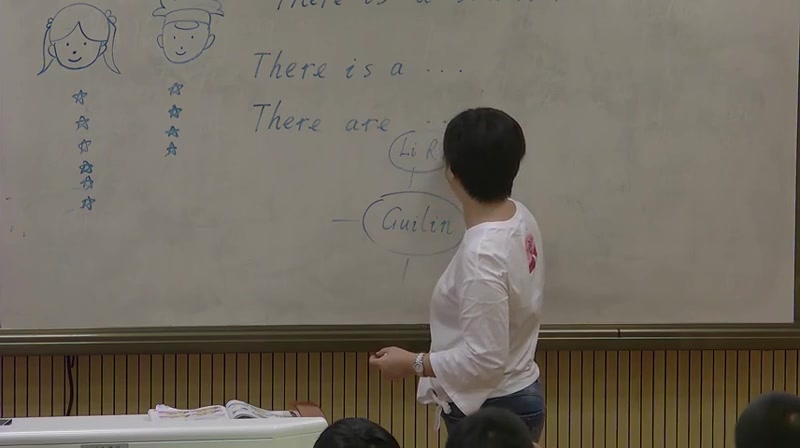 There is a
There is a ....
There are
Li R
Guilin